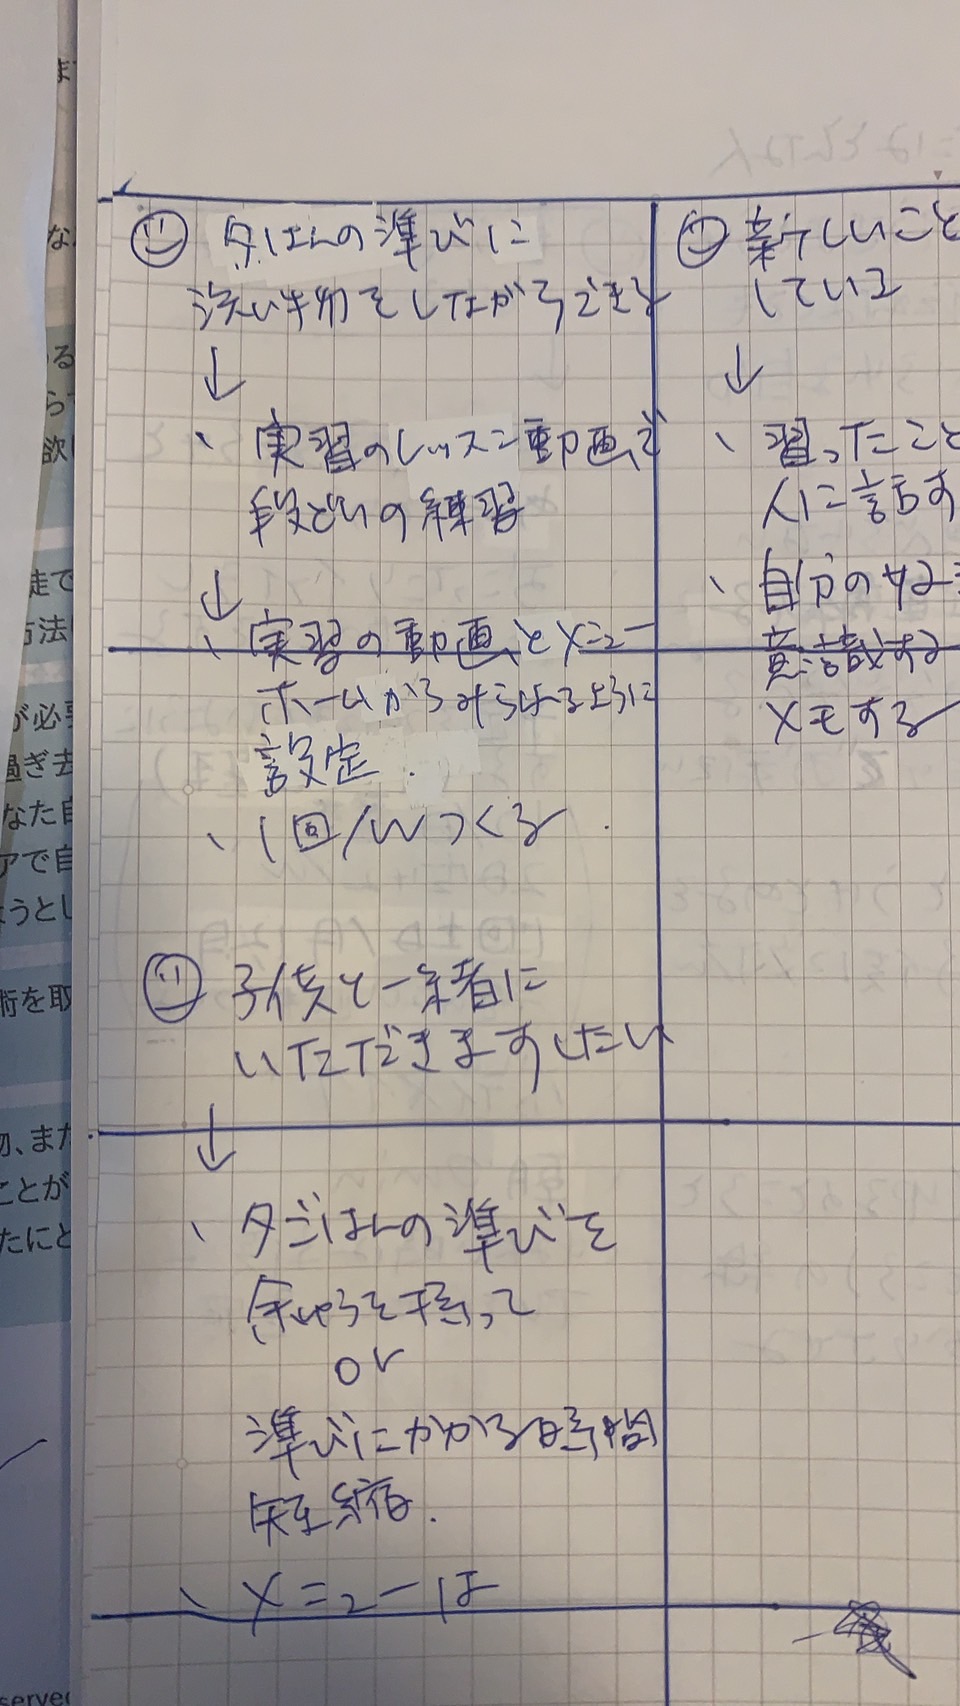 夕はんの準びに
洗い物をしながらできる
↓
、実習のレッスン動画で
段どりの練習
↓
、実習の動画とメニュー
ホームからみられるように
設定.
、1回/Wつくる.
子供と一緒に
いただきますしたい
↓
、夕ごはんの準びを
余ゆうを持って
or
準びにかかる時間
短縮.
、メニューは
新しいこと
している
↓
、習ったこと
人に話す
、自分の
意識する
メモする
まで
な
る
ら
欲
徒で
方法
が必要
過ぎ去
なた自
アで自
ようとし
術を取
、また
ことが
たにと
served